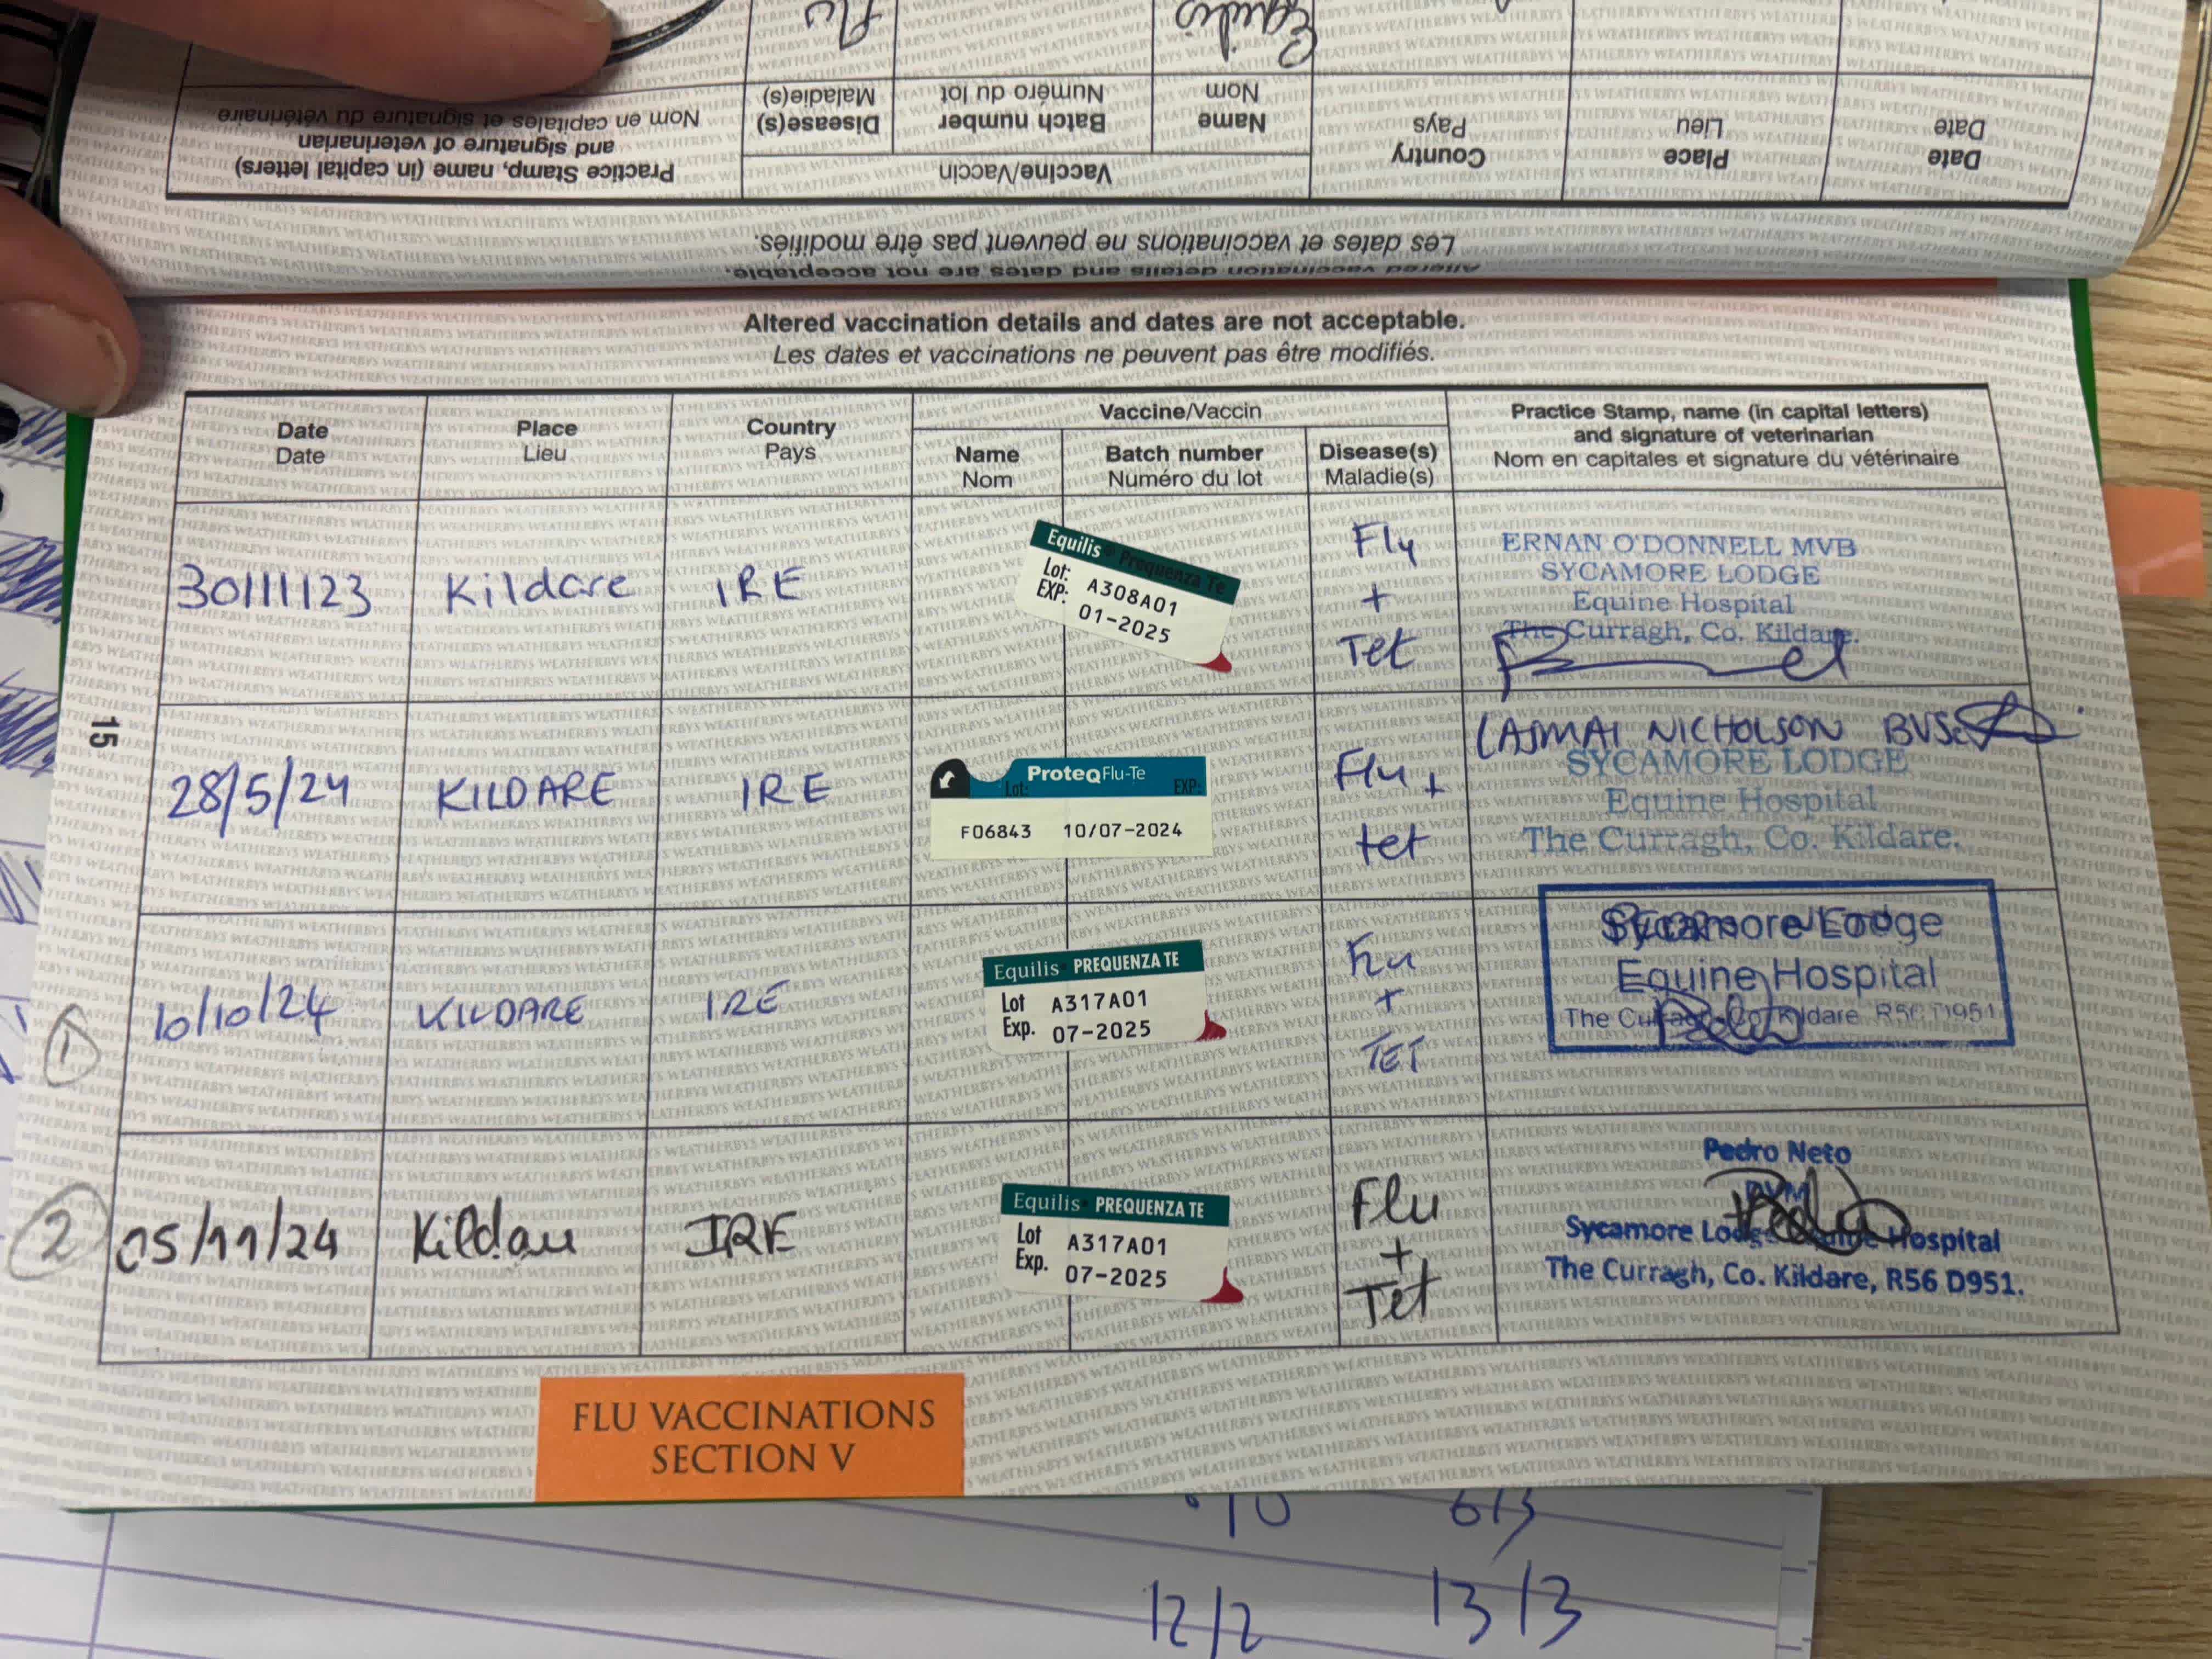 Equilis Flu
Date Place Country Vaccine/Vaccin Practice Stamp, name (in capital letters)
and signature of veterinarian
Date Lieu Pays Name Batch number Disease(s) Nom en capitales et signature du vétérinaire
Nom Numéro du lot Maladie(s)
Les dates et vaccinations ne peuvent pas être modifiés.
Altered vaccination details and dates are not acceptable.
Altered vaccination details and dates are not acceptable.
Les dates et vaccinations ne peuvent pas être modifiés.
Date Place Country Vaccine/Vaccin Practice Stamp, name (in capital letters)
and signature of veterinarian
Date Lieu Pays Name Batch number Disease(s) Nom en capitales et signature du vétérinaire
Nom Numéro du lot Maladie(s)
30/11/23 Kildare IRE
Equilis Prequenza Te
Lot: A308A01
EXP: 01-2025
Flu
+
Tet
ERNAN O'DONNELL MVB
SYCAMORE LODGE
Equine Hospital
The Curragh, Co. Kildare.
28/5/24 KILDARE IRE
ProteqFlu-Te
Lot: EXP:
F06843 10/07-2024
Flu +
tet
NICHOLSON BVSc
SYCAMORE LODGE
Equine Hospital
The Curragh, Co. Kildare.
15
1
10/10/24 KILDARE IRE
Equilis PREQUENZA TE
Lot A317A01
Exp. 07-2025
Flu
+
TET
Sycamore Lodge
Equine Hospital
The Curragh, Co. Kildare R56 D951
2
05/11/24 Kildare IRE
Equilis PREQUENZA TE
Lot A317A01
Exp. 07-2025
Flu
+
Tet
Pedro Neto
DVM
Sycamore Lodge Equine Hospital
The Curragh, Co. Kildare, R56 D951.
FLU VACCINATIONS
SECTION V
6/3
12/2 13/3
WEATHERBYS